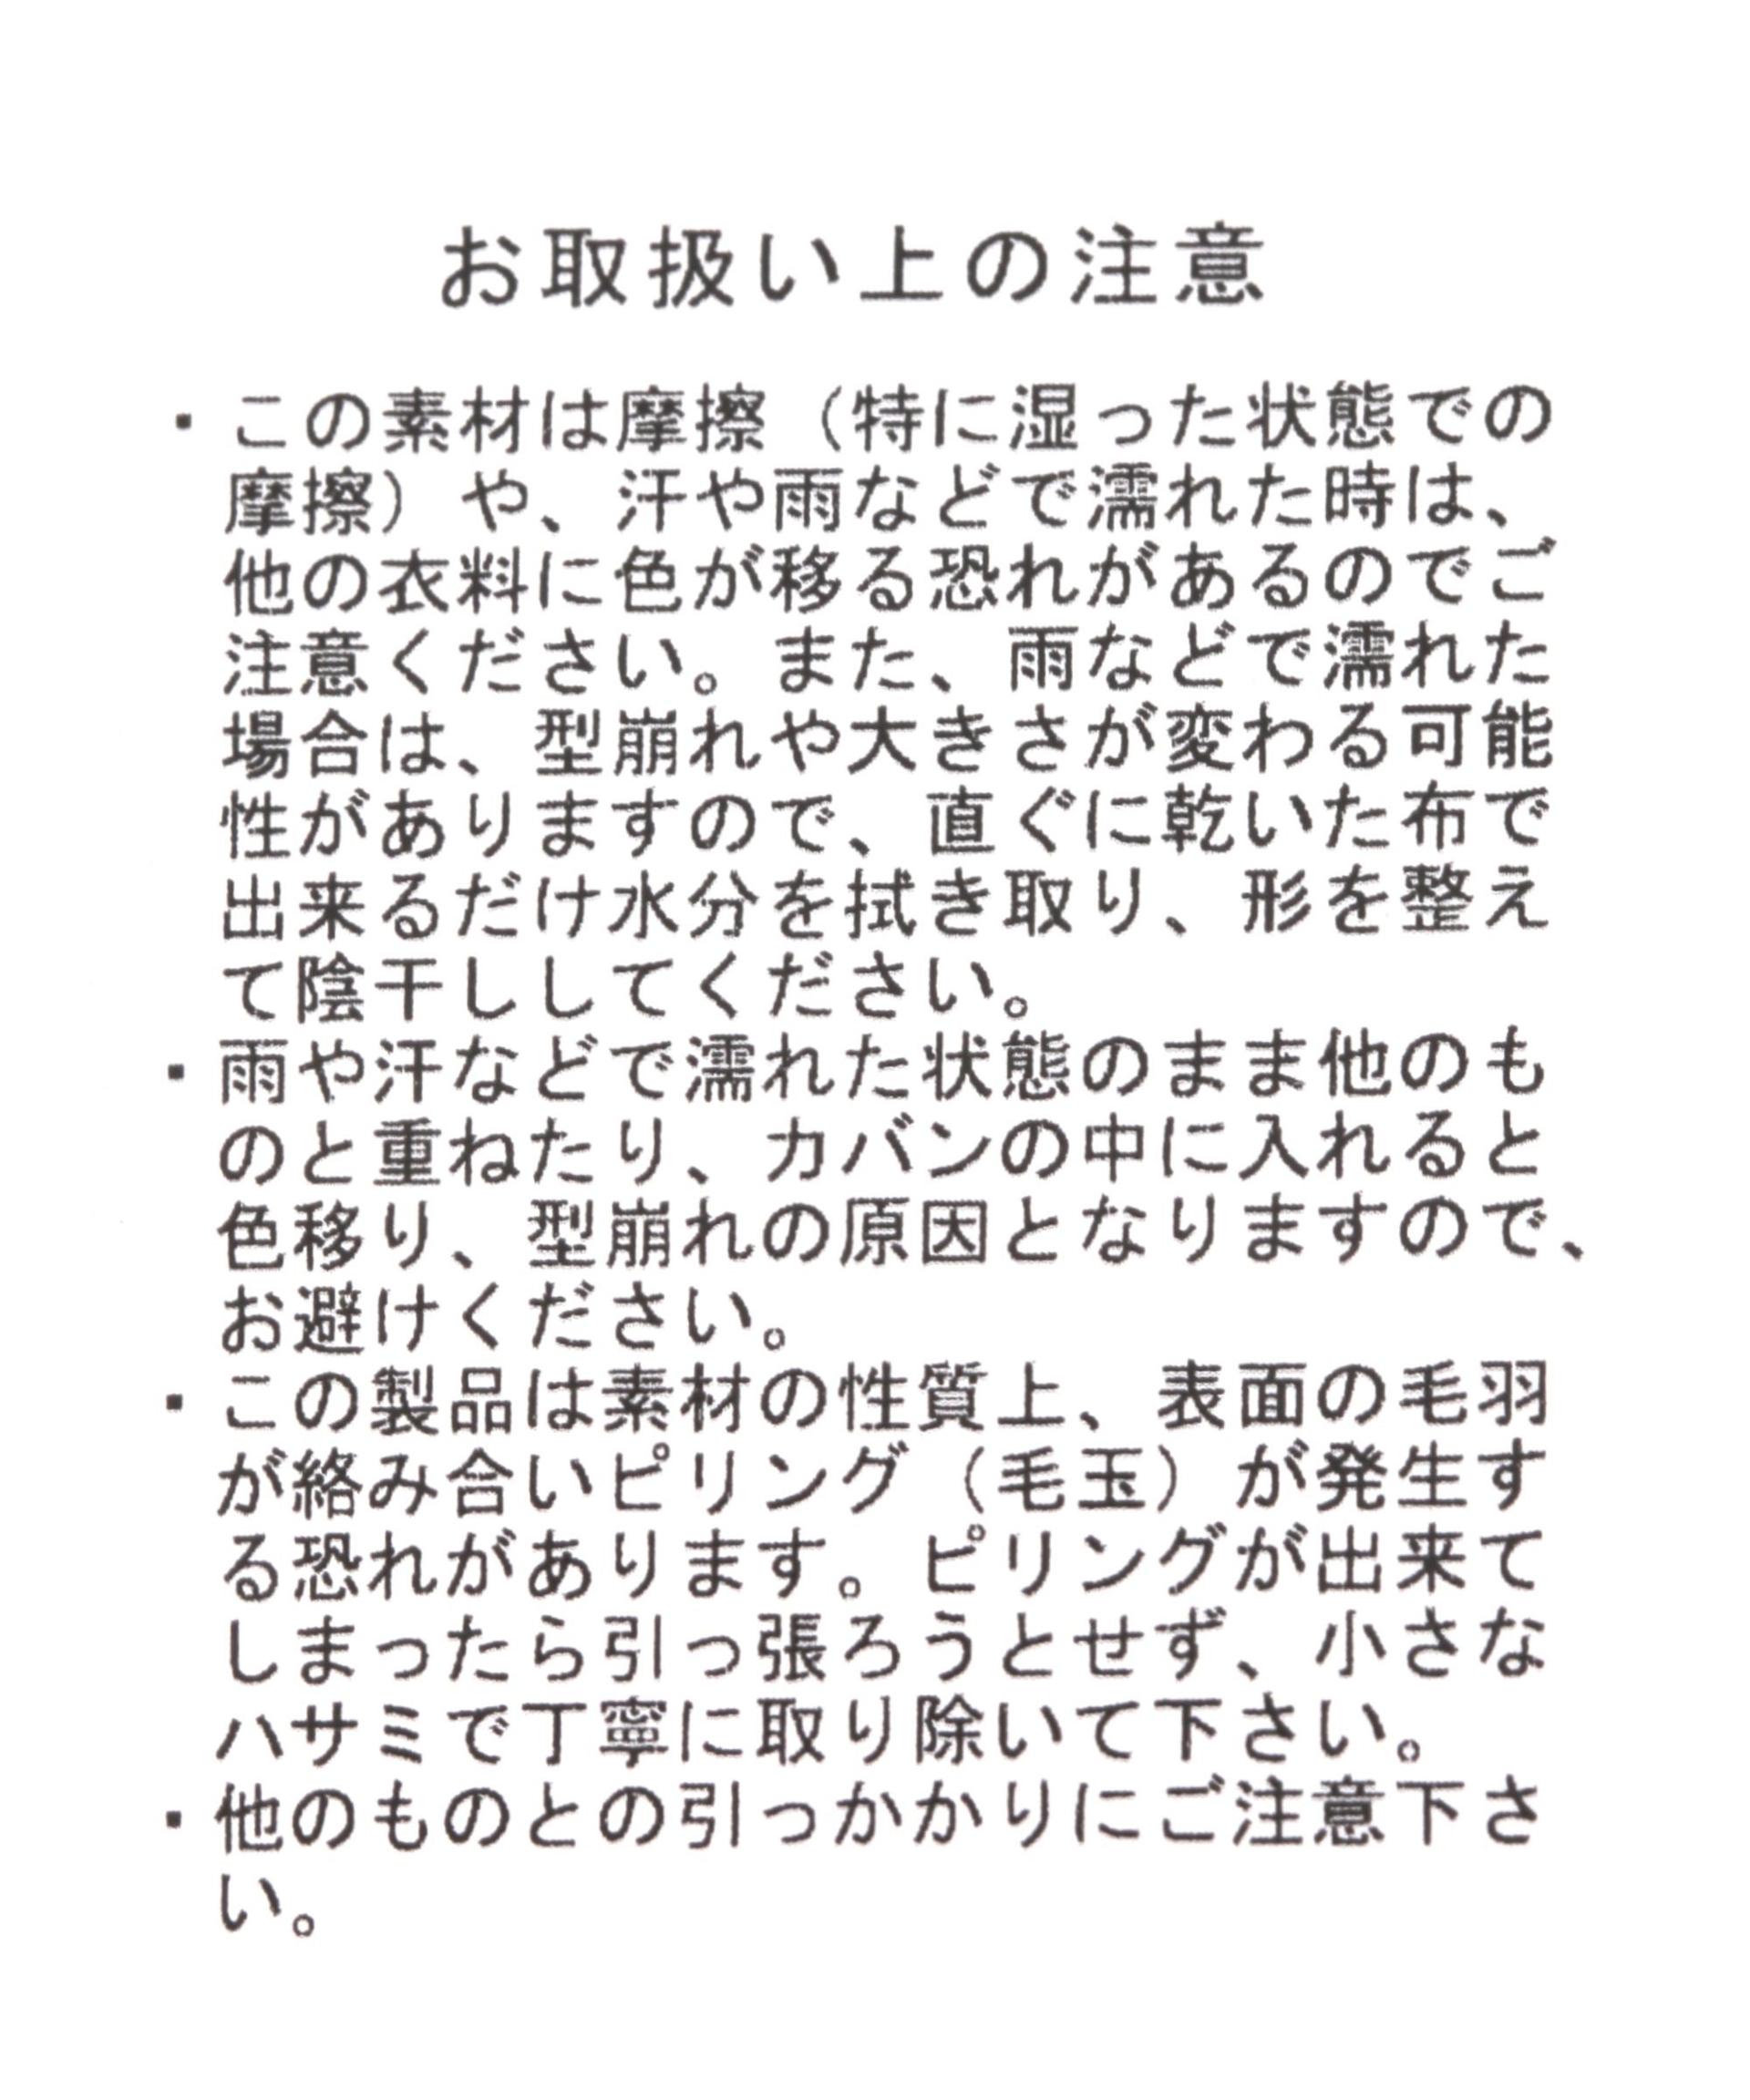 お取扱い上の注意
・この素材は摩擦（特に湿った状態での
摩擦）や、汗や雨などで濡れた時は、
他の衣料に色が移る恐れがあるのでご
注意ください。また、雨などで濡れた
場合は、型崩れや大きさが変わる可能
性がありますので、直ぐに乾いた布で
出来るだけ水分を拭き取り、形を整え
て陰干ししてください。
・雨や汗などで濡れた状態のまま他のも
のと重ねたり、カバンの中に入れると
色移り、型崩れの原因となりますので、
お避けください。
・この製品は素材の性質上、表面の毛羽
が絡み合いピリング（毛玉）が発生す
る恐れがあります。ピリングが出来て
しまったら引っ張ろうとせず、小さな
ハサミで丁寧に取り除いて下さい。
・他のものとの引っかかりにご注意下さ
い。